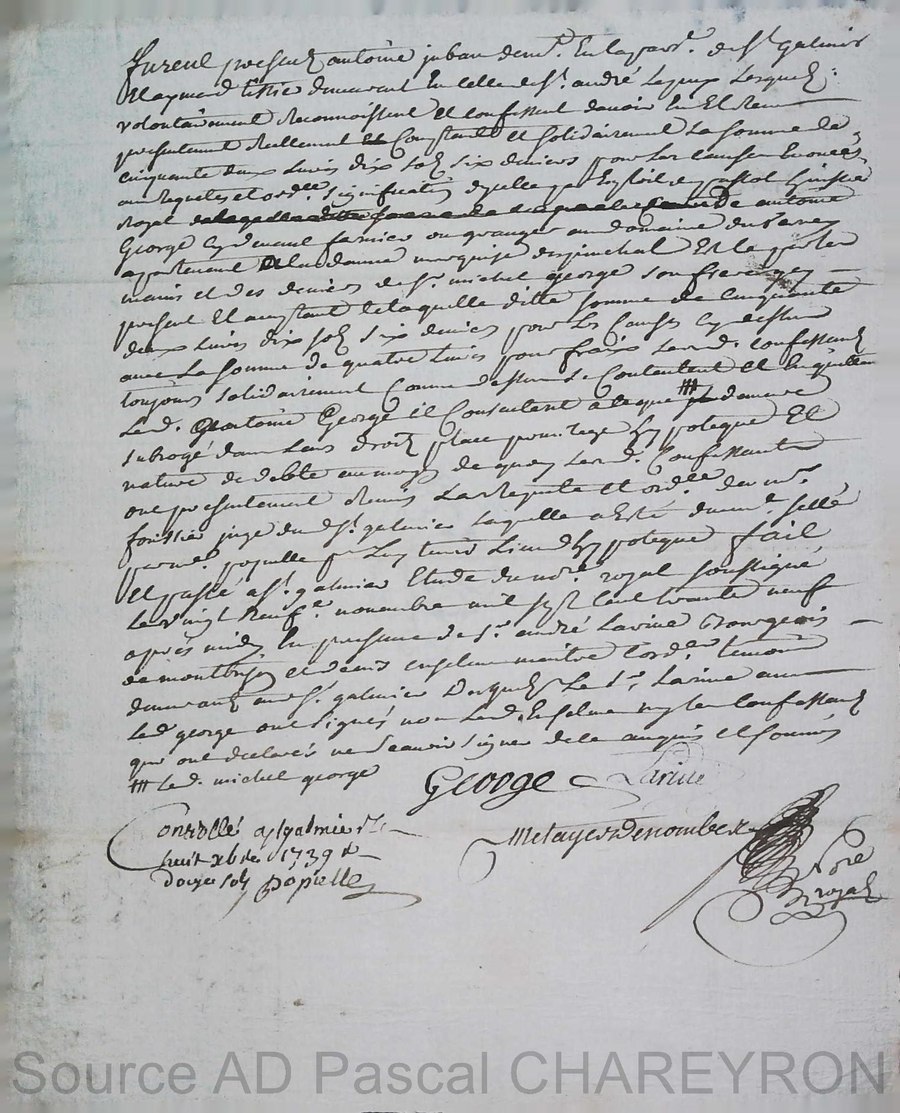 furent presents antoine juban dem.t En la parr.e de St galmier
Raymond tissie demeurant En celle de St. andré Le puy Lesquels
volontairement Reconnoissent Et Confessent d'avoir Eu Et Receu
presentement Reellement Constant Et solidairement La somme de
cinquante deux Livres dix sols six deniers pour Les causes Enoncées
aux Requete et ord.ce signification d'icelle par Exploit huissier
Royal de antoine
George cy devant fermier ou granger au domaine
apartenant a la dame marquise Est le par les
mains et des deniers de Sr. michel george son frere icy
present Et acceptant de laquelle ditte somme de cinquante
deux Livres dix sols six deniers pour Les Causes cy dessus
avec La somme de quatre Livres pour fraix Lesd. confessants
toujours solidairement Comme dessus se Contentent et En quittent
Led. antoine George Et Consentent a ce que demeure
subrogé dans Leurs droits place privilege hypoteque Et
nature de debte au moyen de quoy Lesd. Confessants
ont presentement Remis La Requete et ord.ce de mr.
forissier juge dud. St. galmier laquelle a Esté
hypoteque fait
Et passé a St. galmier Etude du no.re royal soussigné
Le vingt Neuf.e novembre mil sept cent trente neuf
apres midy En presence de Sr. andré Lavine Bourgeois
de montbrison et denis Enselme maitre Cord.er temoins
demeurants aud. St. galmier desquels Le Sr. Lavine avec
Led george ont signés non Led. Enselme ny les Confessants
qui ont declarés ne scavoir signer de ce enquis et sommés
Led. michel george
George Lavine
Controllé a St galmier Le
huit xbre 1739 R
douze sols Popielle
Metayer Denombex
No.re
royal
Source AD Pascal CHAREYRON